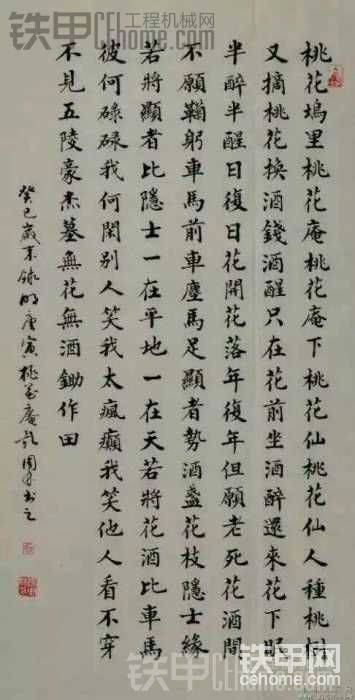 铁甲 工程机械网
桃花塢里桃花庵桃花庵下桃花仙桃花仙人種桃樹
又摘桃花換酒錢酒醒只在花前坐酒醉還來花下眠
半醉半醒日復日花開花落年復年但願老死花酒間
不願鞠躬車馬前車塵馬足顯者勢酒盞花枝隱士緣
若將顯者比隱士一在平地一在天若將花酒比車馬
彼何碌碌我何閑別人笑我太瘋癲我笑他人看不穿
不見五陵豪杰墓無花無酒鋤作田
癸巳歲末錄明唐寅桃花庵詩周書之
铁甲网
cehome.com